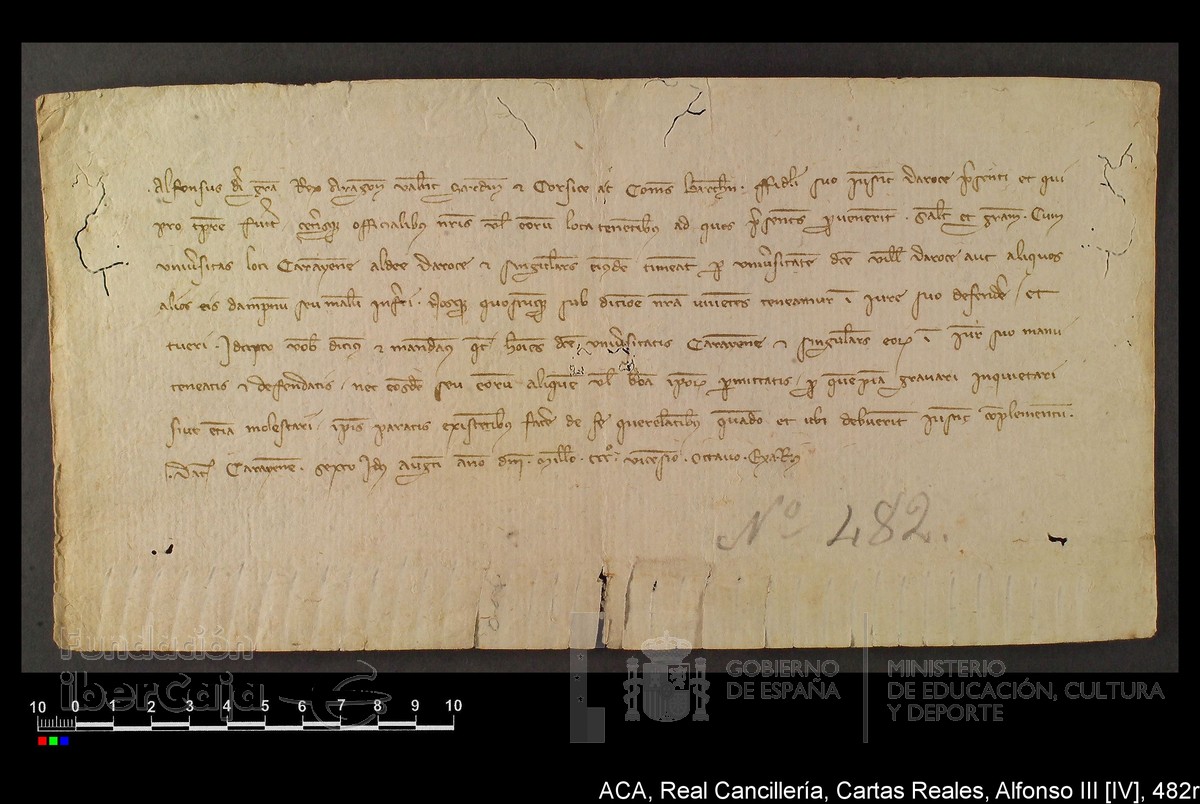 Alfonsus dei gra Rex Aragon Valent Sardin et Corsice ac Comes Barchn. ffideli suo Justic daroce presenti et qui
pro tpre fuerit ceterisque officialibus nris vel eorum loca tenentibus ad quos presentes pervenerint. Salt et gram. Cum
universitas loci Caraxene aldee daroce et singulares timeat per universitatem dce ville daroce aut aliquos
alios eis dampnum seu malum inferri. Nosque quoscumque sub dicione nra viventes teneamur in iure suo defendere et
tueri. Idcirco vob dicim et mandam qt homines dce universitatis Caraxene et singulares eorum in iure suo manu
teneatis et deffendatis. nec eosdem seu eorum aliquem vel bona ipor permittatis per quempiam gravari inquietari
sive etiam molestari. ipis paratis existentibus facere de se querelantibus quando et ubi debuerint justic complementum.
Dat Caraxene. sexto Idus Augusti anno dni. Millo. CCC. vicesimo. octavo. Exa. R
Nº 482.
Fundación
iberCaja
GOBIERNO
DE ESPAÑA
MINISTERIO
DE EDUCACIÓN, CULTURA
Y DEPORTE
10 0 1 2 3 4 5 6 7 8 9 10
ACA, Real Cancillería, Cartas Reales, Alfonso III [IV], 482r